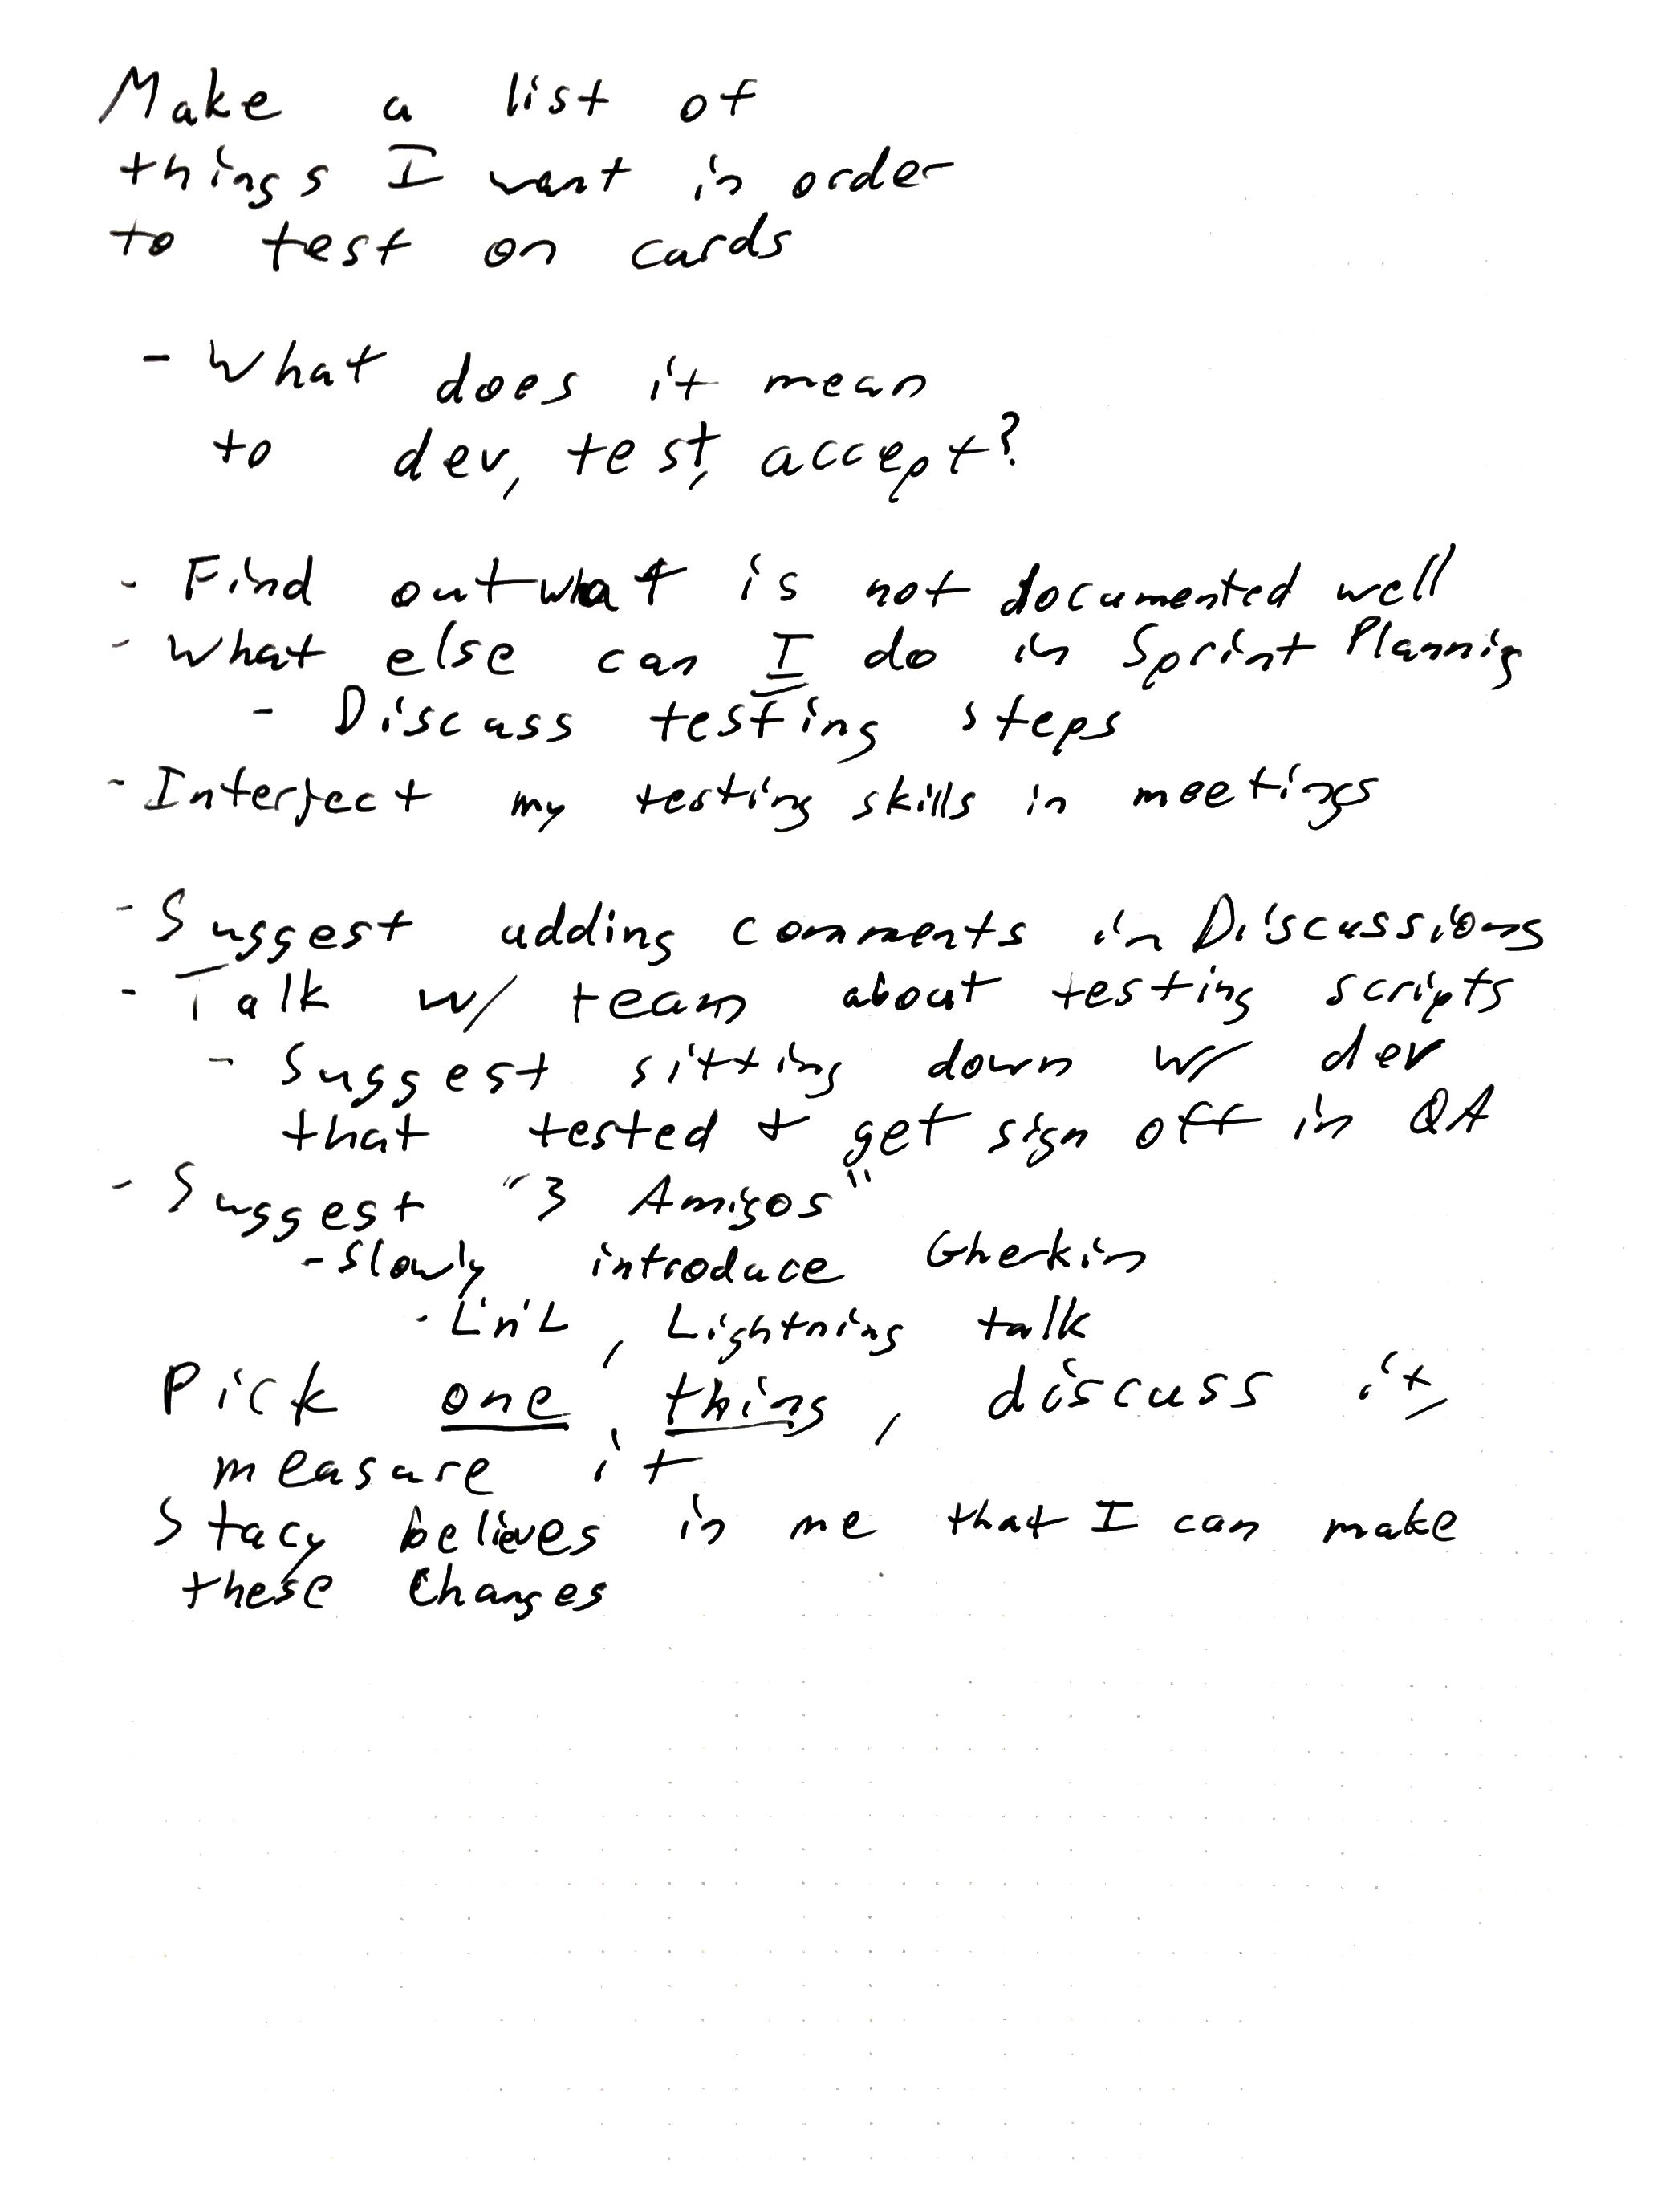 Make a list of
things I want in order
to test on cards
- What does it mean
to dev, test, accept?
- Find out what is not documented well
- What else can I do in Sprint Plannig
- Discuss testing steps
- Interject my testing skills in meetings
- Suggest adding comments in Discussions
- Talk w/ team about testing scripts
- Suggest sitting down w/ dev
that tested + get sign off in QA
- Suggest "3 Amigos"
- Slowly introduce Gherkin
- L'n'L, Lightning talk
Pick one thing, discuss it,
measure it
Stacy believes in me that I can make
these changes